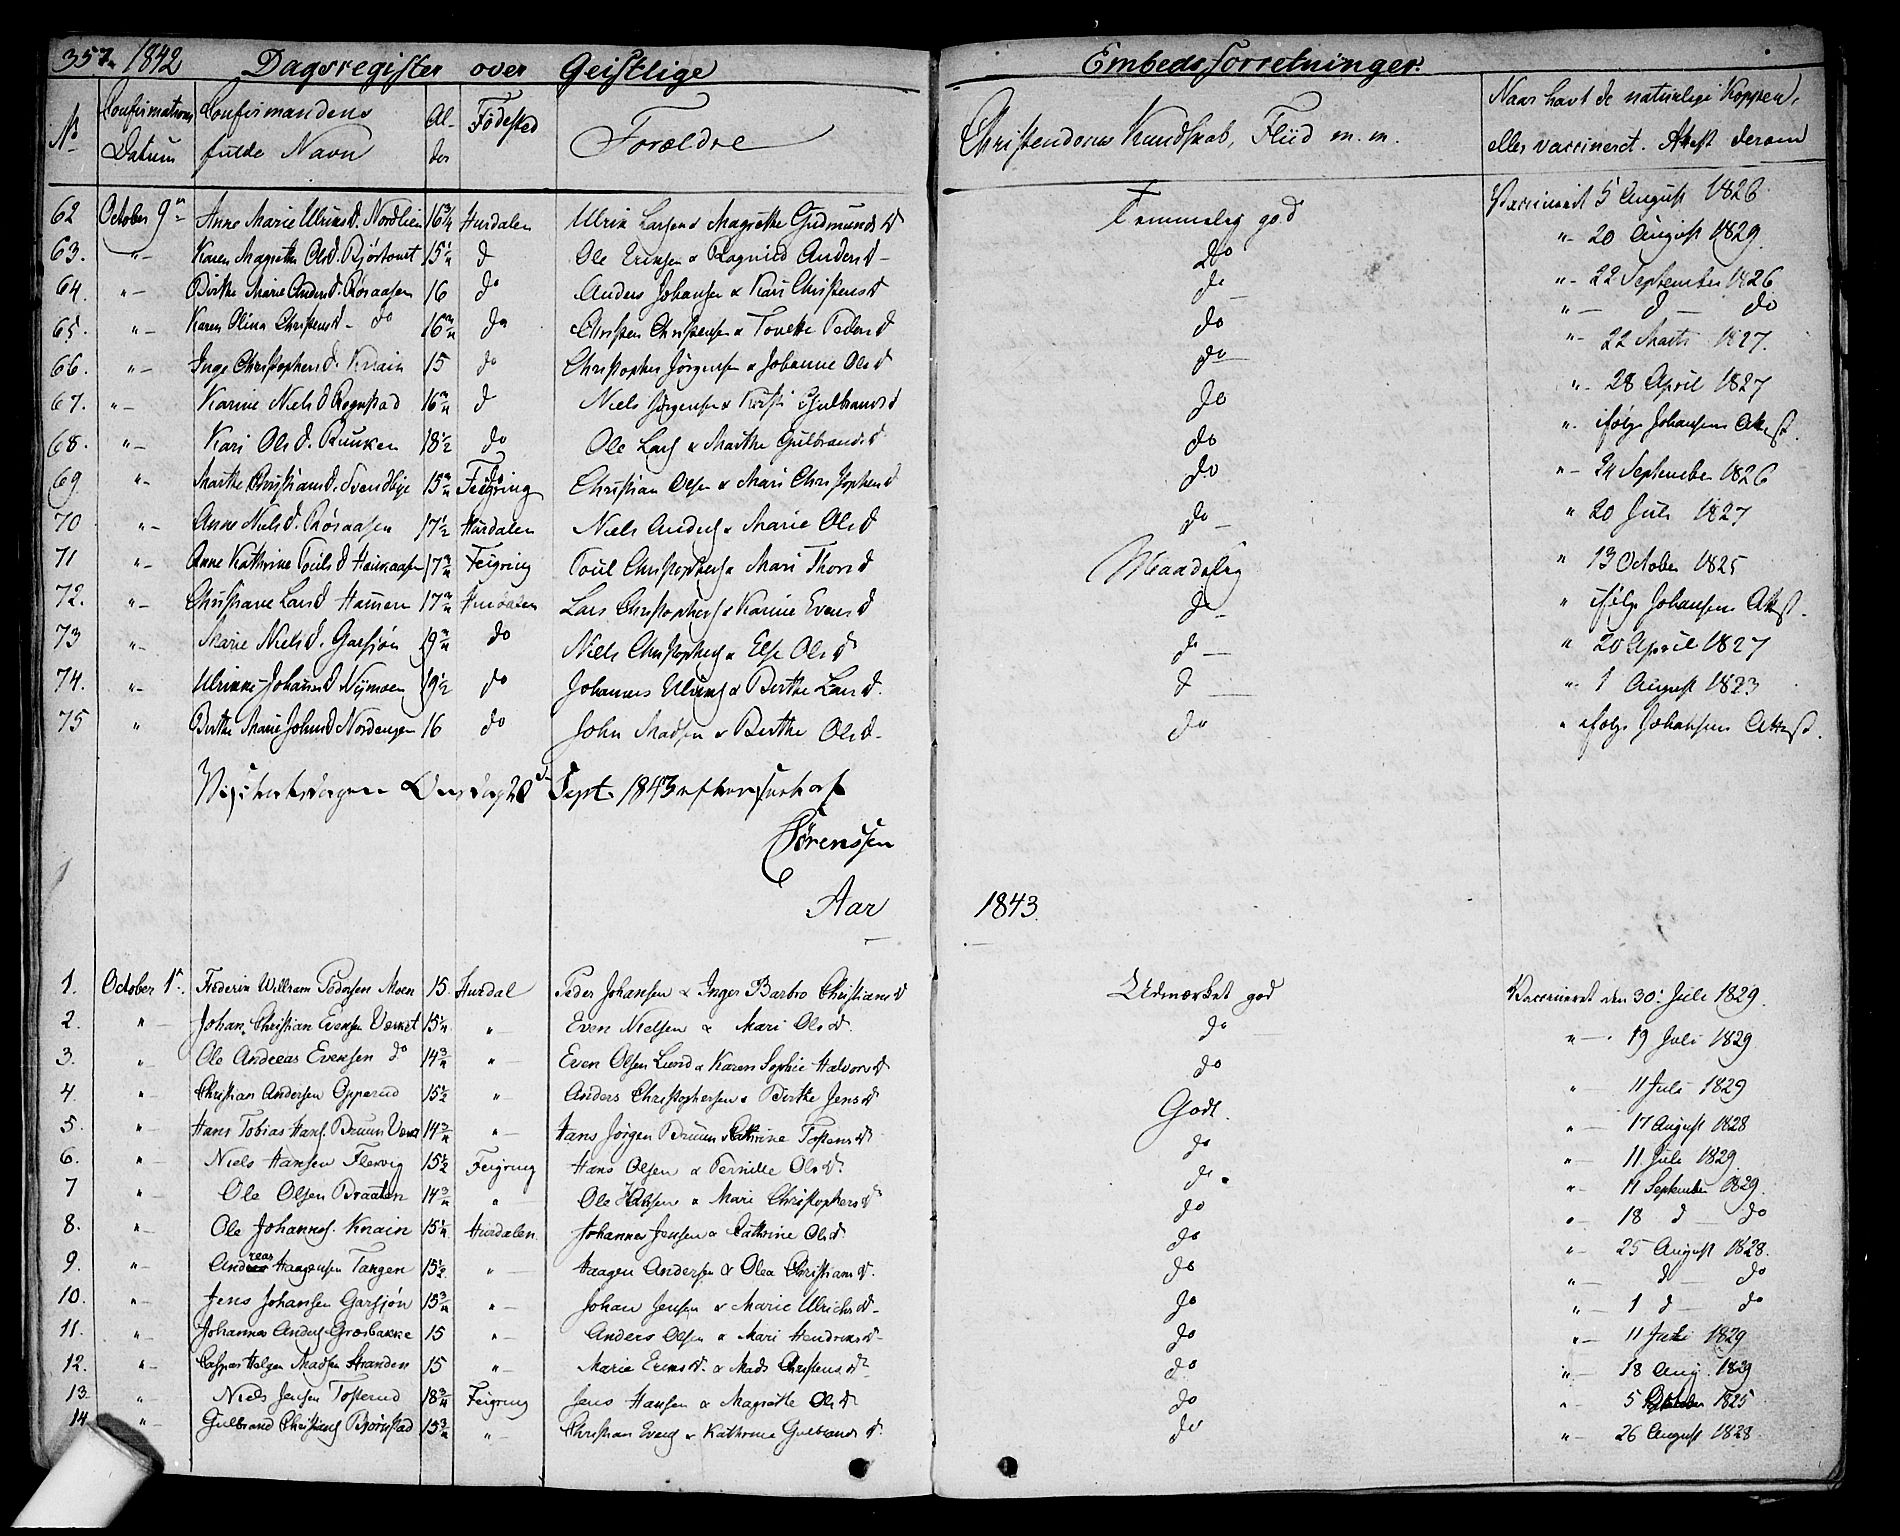 357. 1842 Dagsregister over Geistlige Embedsforretninger.
No Confirmations Datum Confirmandens fulde Navn Alder Fødested Forældre Christendoms Kundskab, Fliid m. m. Naar havt de naturlige Kopper, eller vaccineret. Attest derom
62 October 9de Anne Marie Ulriksd. Nordlien 16 3/4 Hurdalen Ulrik Larsen & Magrethe Gudmundsd Temmelig god Vaccineret 5 August 1826
63. "- Karen Magrethe Olsd. Bjørtomt 15 1/4 d Ole Eriksen & Ragnild Andersd - Do "- 20 August 1829
64. "- Birthe Marie Andersd. Røsaasen 16 do Anders Johansen & Kari Christensd do "- 22 September 1826
65. "- Karen Olina Christensd - do 16 3/4 do Christen Christensen & Tovelie Pedersd do "- d - do
66. "- Inge Christophersd. Knain 15 do Christopher Jørgensen & Johanne Olsd do "- 22 Marts 1827.
67. "- Karine Nielsd Rognstad 16 3/4 d Niels Jørgensen & Kirsti Gulbrandsd do "- 28 April 1827
68. "- Kari Olsd. Ruuken 18 1/2 do Ole Lars & Marthe Gulbrandsd do ". ifølge Johansens Attest.
69 "- Marthe Christiansd. Svendbye 15 3/4 Feigring Christian Olsen & Mari Christophersd do "- 24 September 1826
70 "- Anne Nielsd. Røsaasen 17 1/2 Hurdalen Niels Anders & Marie Olsd do - " 20 Juli 1827
71 "- Anne Kathrine Poulsd Haukaasen 17 3/4 Feigring Poul Christophers & Mari Thorsd Maadelig " 13 October 1825
72. "- Christiane Larsd Hansen 17 3/4 Hurdalen Lars Christophers & Karine Evensd do - " ifølge Johansens Attest.
73 "- Marie Nielsd. Garsjøn 19 3/4 do Niels Christophers & Else Olsd do - " 20 April 1827
74. "- Ulrikke Johannesd Nymoen 19 1/2 do Johannes Ulriks & Berthe Larsd. d - ". 1 August 1823
75 " Berthe Marie Johnsd Nordengen 16 do John Madsen & Berthe Olsd - do " ifølge Johansens Attest.
Sept. 1843
Sørenssen
Aar 1843.
1. October 1st. Frederik William Pedersen Moen 15 Hurdal Peder Johansen & Inger Barbro Christiansd Udmærket god Vaccineret den 30. Juli 1829.
2. " - Johan Christian Evensen Verket 15 1/4 " Even Nielsen & Mari Olsd. do " - 19 Juli 1829
3. " Ole Andreas Evensen do 14 3/4 " - Even Olsen Lund & Karen Sophie Halvorsd do
4. "- Christian Andersen Opperud 15 1/2 "- Anders Christophersen & Birthe Jensd Godt. " - 11 Juli 1829
5. "- Hans Tobias Hans. Bruun Værket 14 3/4 "- Hans Jørgen Bruun & Cathrine Tostensd do " - 17 August 1828
6. "- Niels Hansen Flesvig 15 1/2 Feigring Hans Olsen & Pernille Olsd. do. " - 11 Juli 1829
7 "- Ole Olsen Braaten 14 3/4 " Ole Hansen & Mari Christophersd do "- 11 September 1829.
8. "- Ole Johannes. Knain 15 1/4 Hurdalen Johannes Jensen & Cathrine Olsd do "- 18 d - do
9. "- Andreas Haagensen Tangen 15 1/2 " - Haagen Andersen & Olea Christiansd. do "- 25 August 1828.
10. "- Jens Johansen Garsjøn 15 3/4 "- Johan Jensen & Marie Ulrichsd - do " - d - do
11. "- Johannes Anders. Græsbakke 15 "- Anders Olsen & Mari Hendriksd - do "- 1 d - do
12. "- Caspar Helgen Madsen Stranden 15 " Marie Eriksd. & Mads Christensd do "- 11 Juli 1829
13. " Niels Jensen Tosterud 18 3/4 Feigring Jens Hansen & Magrethe Olsd do " - 18 Aug. 1829
14 "- Gulbrand Christians Bjørnstad 15 3/4 "- Christian Evens & Kathrine Gulbrandsd. do "- 5 October 1825
"- 26 August 1828